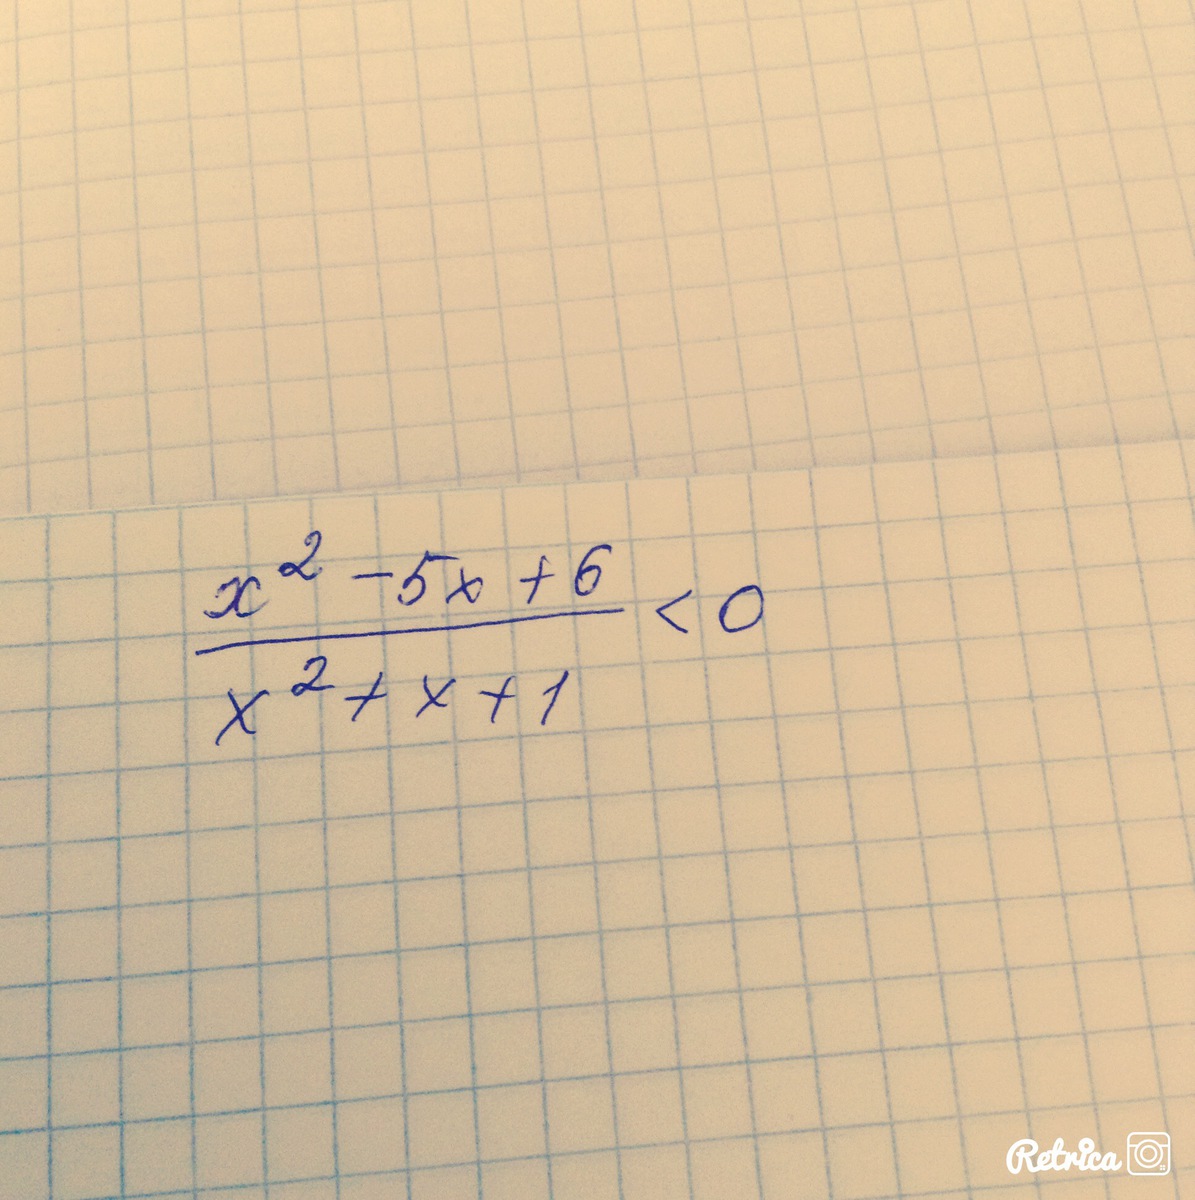 x² - 5x + 6
x² + x + 1
< 0
Retrica